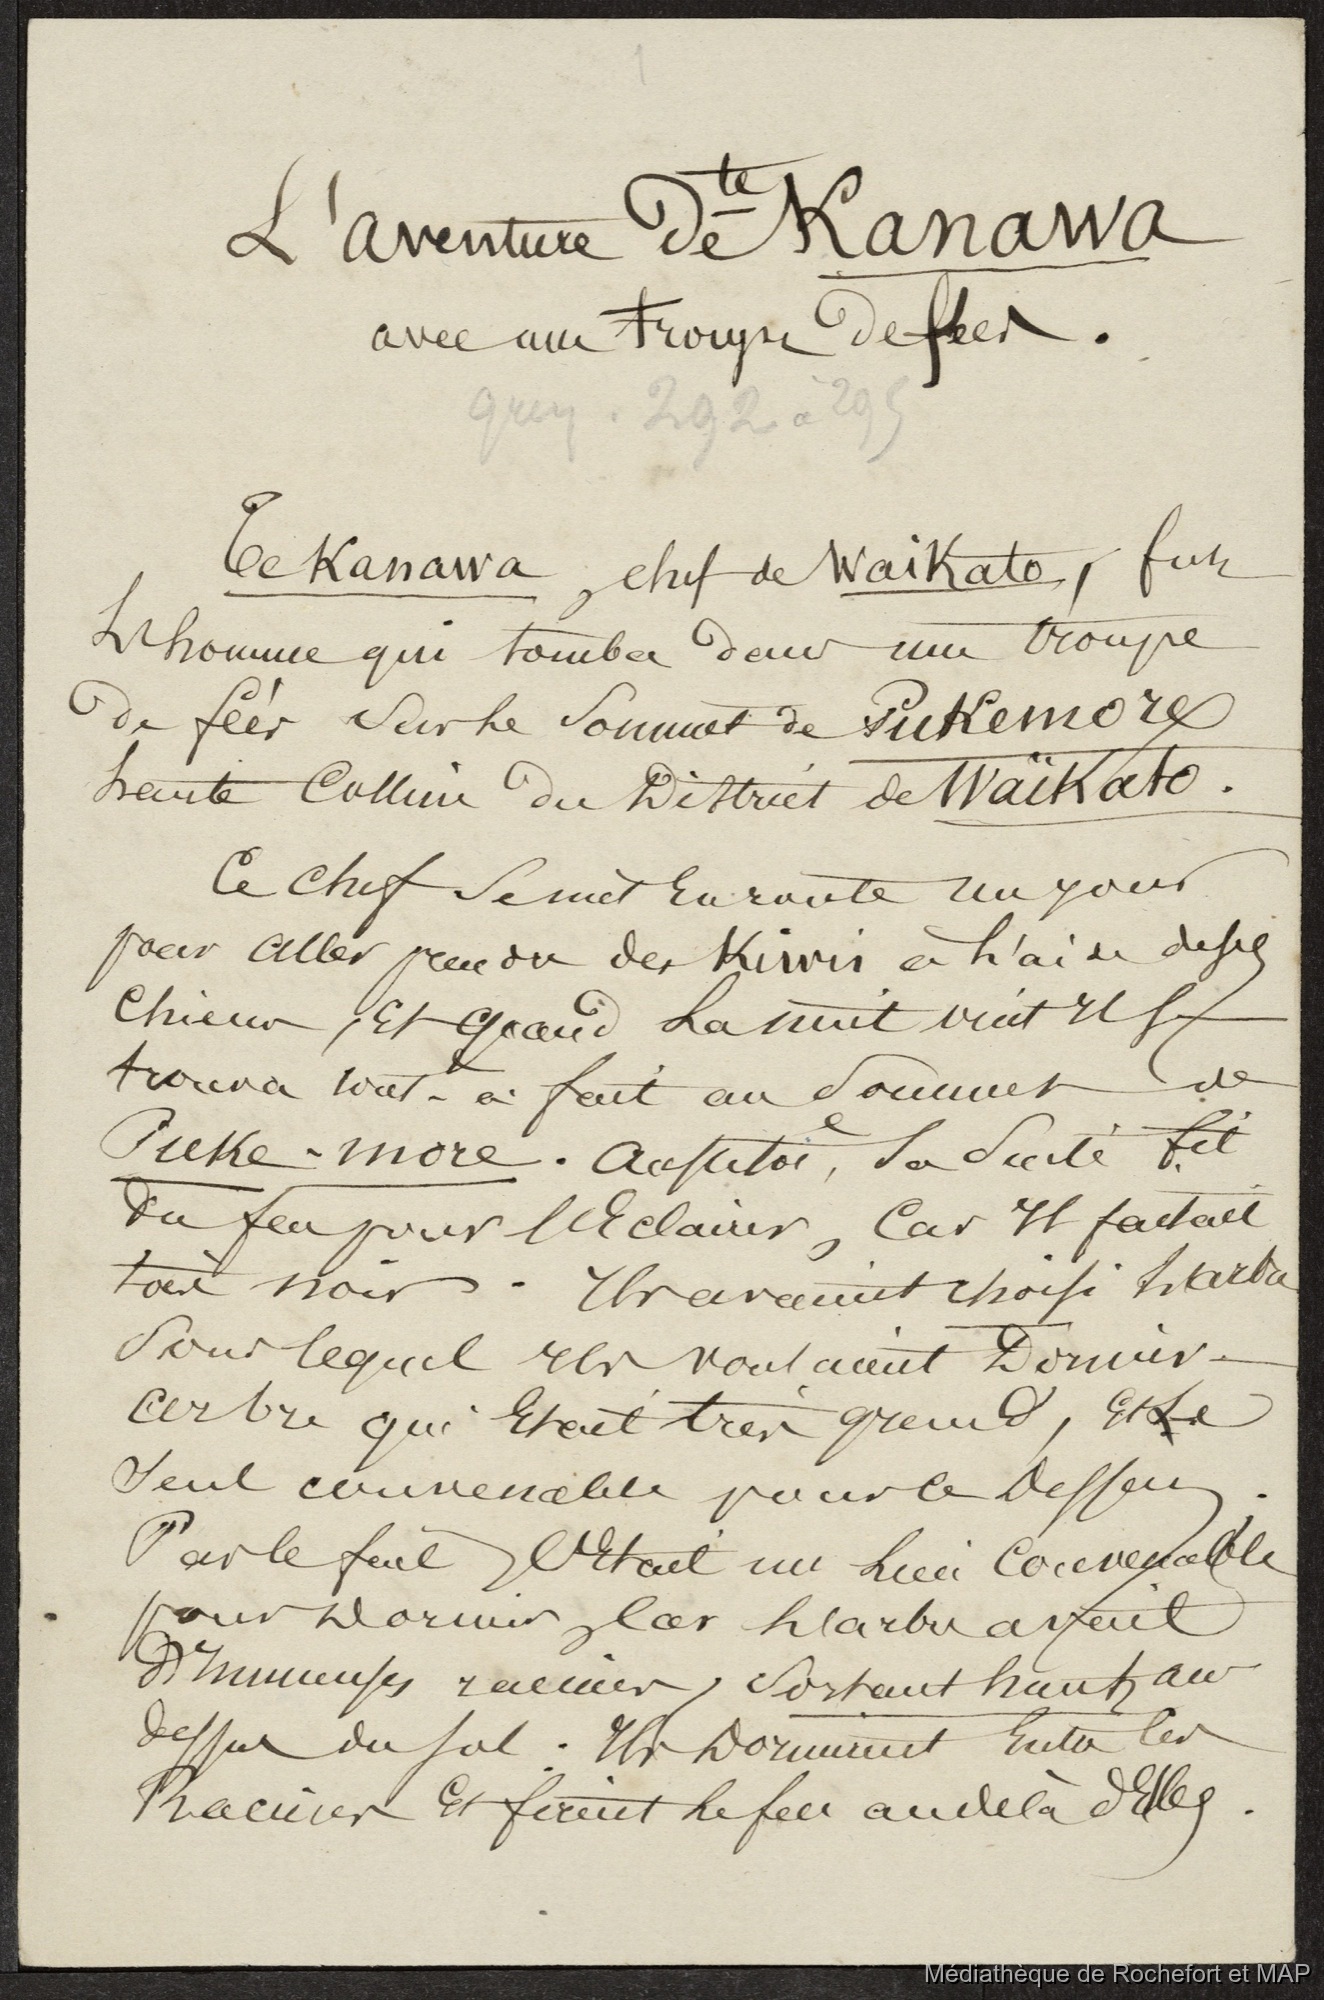 1
L'aventure de te Kanawa
avec une troupe de fées.
grey. 292 à 295
Te Kanawa, chef de Waikato, fut
L'homme qui tomba dans une troupe
de féés sur le sommet de Pukemore
haute Colline du District de Waïkato.
Ce chef se mit En route un jour
pour aller prendre des Kiwis à l'aide de ses
Chiens, Et quand La nuit vint Il se
trouva tout-à fait au Sommet de
Puke-more. Aussitôt, sa suite fit
du feu pour l'Eclairer, Car Il faisait
très noir. Ils avaient choisi L'arbre
Sous lequel Ils voulaient Dormir -
arbre qui Etait très grand, Et le
seul convenable pour ce dessein.
Par le fait, c'Etait un lieu Convenable
pour Dormir, Car L'arbre avait
d'Immenses racines, sortant haut au
dessus du sol. Ils Dormirent Entre les
Racines Et firent le feu au delà d'Elles.
Médiathèque de Rochefort et MAP